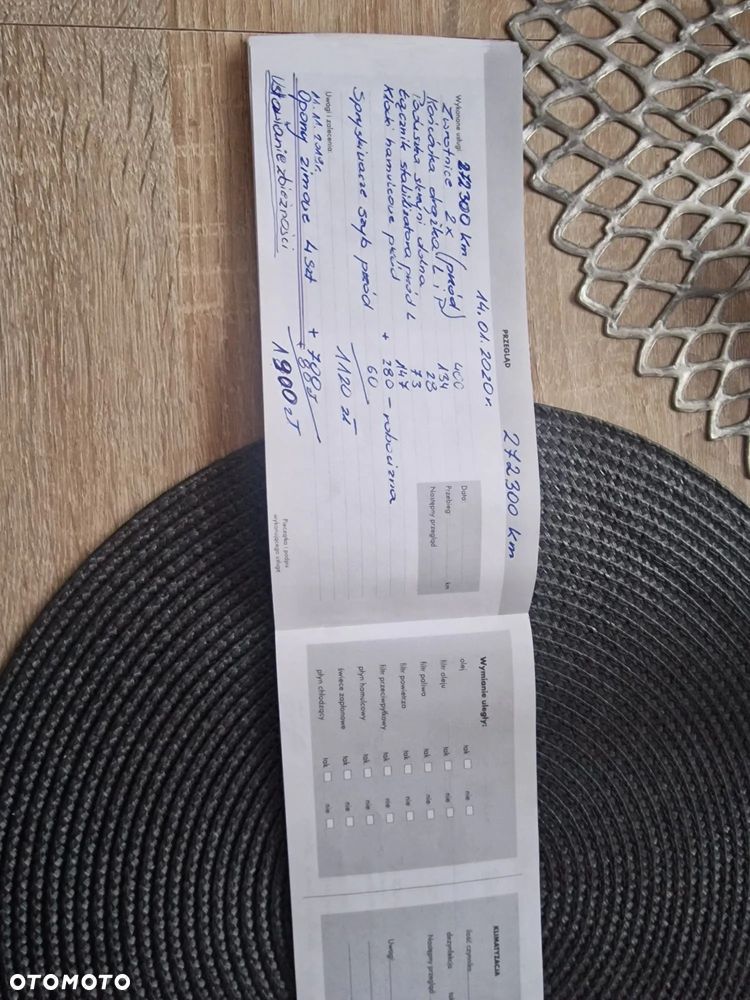 PRZEGLĄD
14.01.2020r. 272300 km
Wykonane usługi: 272300 km
Zwrotnice 2x (przód) 400
Końcówka drążka L i P 134
Poduszka skrzyni dolna 23
73
Łącznik stabilizatora przód L 147
Klocki hamulcowe przód + 280 - robocizna
Spryskiwacze szyb przód 60
1120 zł
Uwagi i zalecenia:
11.11.2019r.
Opony zimowe 4 szt + 700zł
Ustawianie zbieżności + 80zł
1900zł
Data:
Przebieg: km
Następny przegląd
Pieczątka i podpis
wykonującego usługę
Wymianie uległy:
olej tak nie
filtr oleju tak nie
filtr paliwa tak nie
filtr powietrza tak nie
filtr przeciwpyłkowy tak nie
płyn hamulcowy tak nie
świece zapłonowe tak nie
płyn chłodzący tak nie
KLIMATYZACJA
ilość czynnika
dezynfekcja tak
Następny przegląd
Uwagi:
OTOMOTO